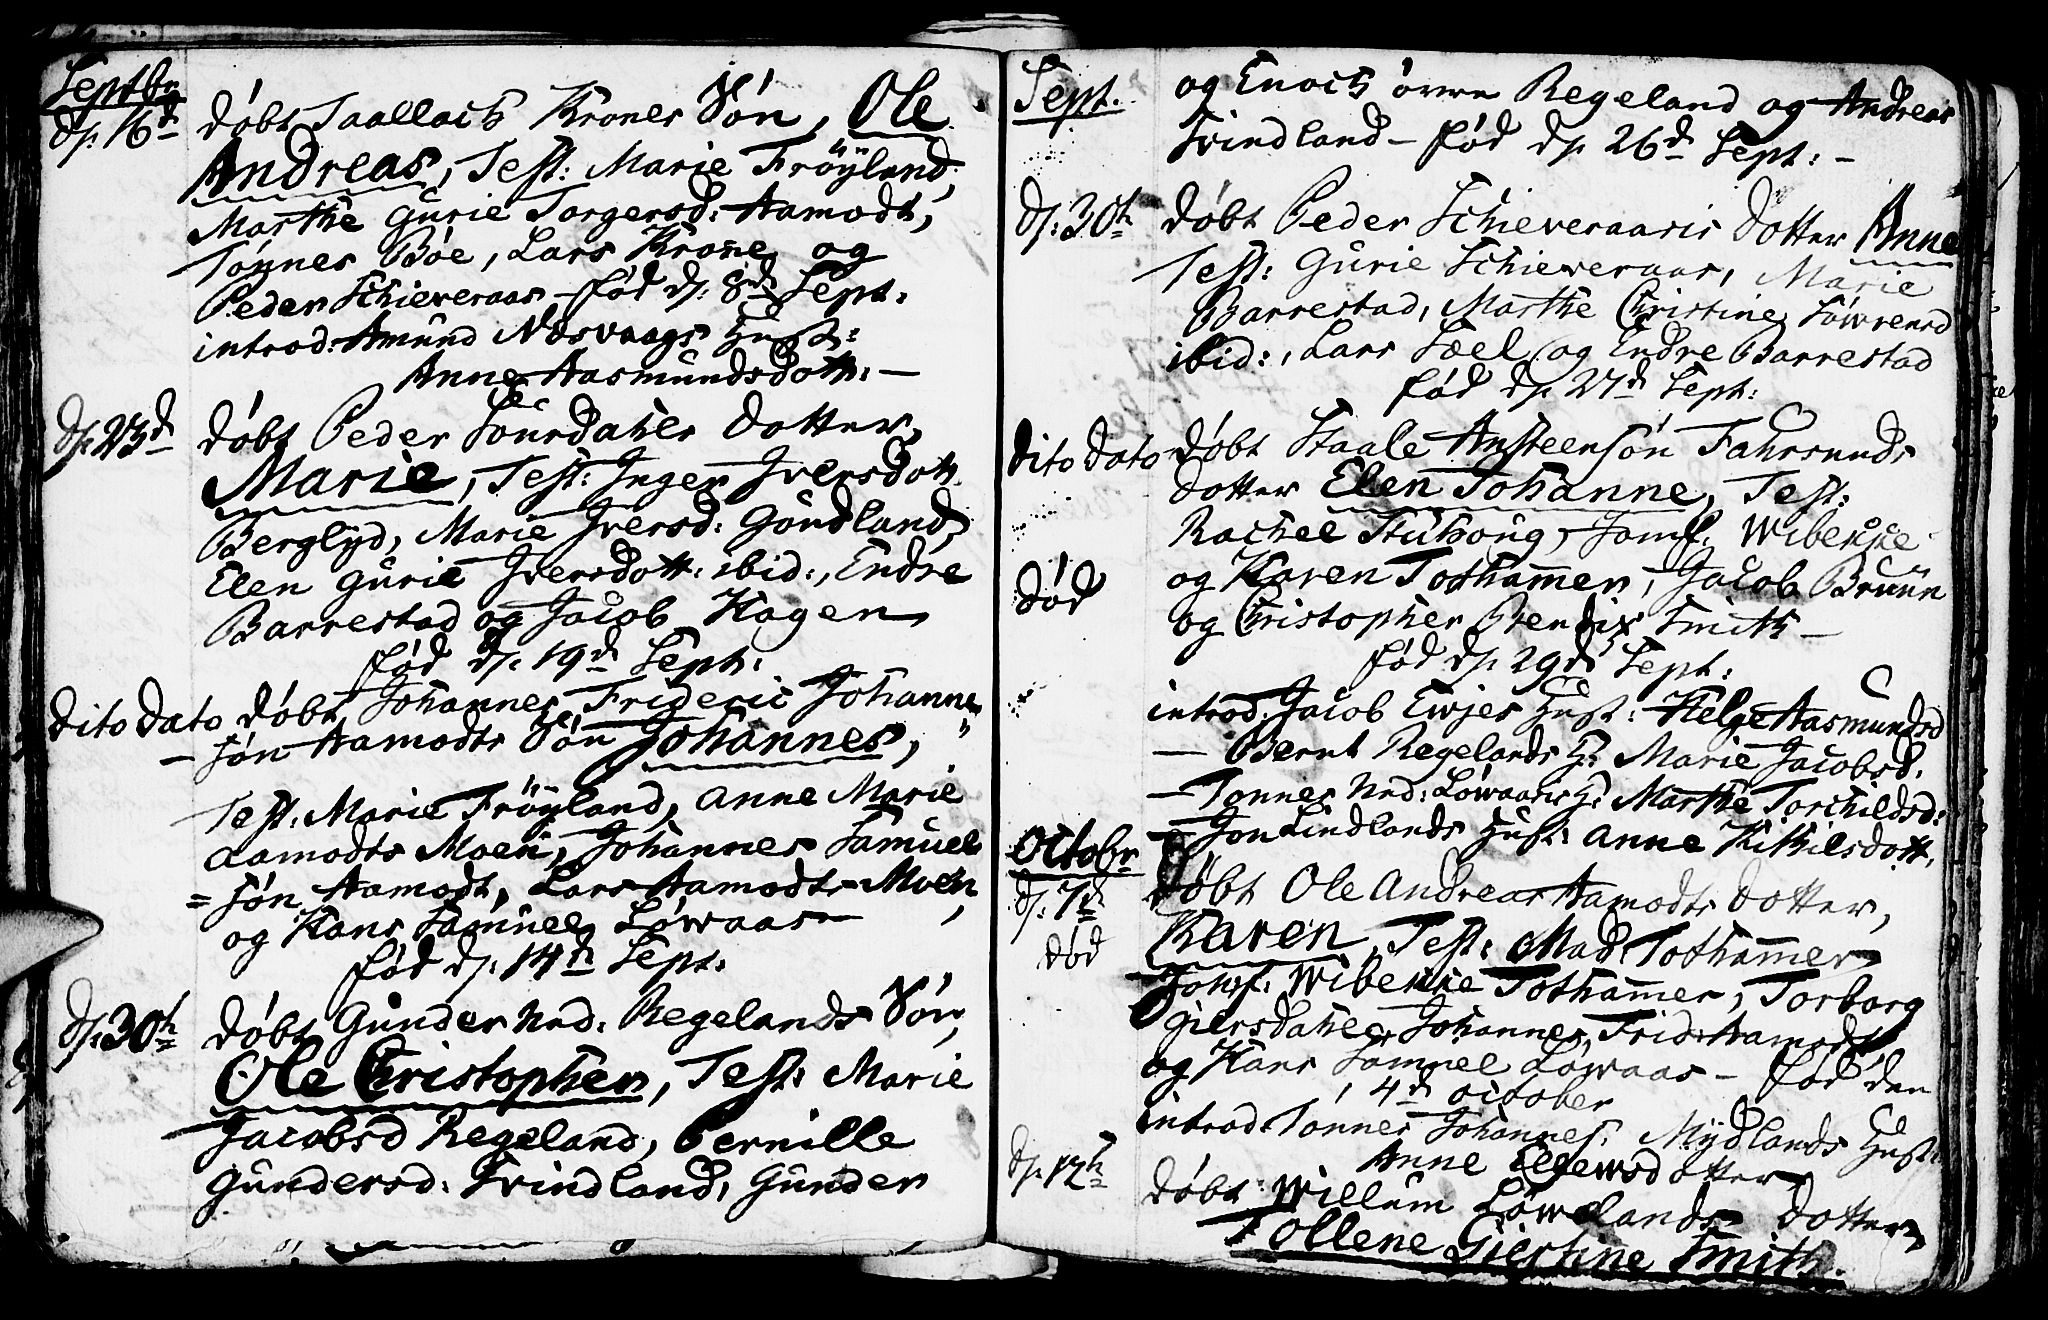 Septbr
d: 16d døbt Taallach Krones Søn, Ole
Andreas, Test: Marie Frøÿland,
Marthe Gurie Torgersd: Aamodt,
Tønnes Bøe, Lars Krone og
Peder Schieveraas - fød d: 8d Sept.
introd: Amund Næsvaags Hust:
Anne Aasmundsdott: -
d: 23d døbt Peder Suurdahls Dotter,
Marie, Test: Inger Iversdott
Berglyd, Marie Iversd: Gøndland,
Elen Gurie Iversdott: ibid:, Endre
Barrestad og Jacob Hagen
fød d: 19d Sept:
dito dato døbt Johannes Frideric Johannes
- søn Aamodts Søn Johannes,
Test: Marie Frøÿland, Anne Marie
Aamodts Moen, Johannes Samuel
= søn Aamodt, Lars Aamodts Moen,
og Hans Samuel Løwaas -
fød d: 14d Sept:
d: 30th døbt Gunder Nrd: Regelands Søn,
Ole Christopher, Test: Marie
Jacobsd Regeland, Pernille
Gundersd: Svindland, Gunder
Sept.
og Enoch øvre Regeland og Andreas
Svindland - fød d: 26d Sept: -
d: 30th døbt Peder Schieveraasis Dotter Anne
Test: Gurie Schieveraas, Marie
Barrestad, Marthe Christine Løwrensd
ibid:, Lars Sæel og Endre Barrestad
fød d: 27d Sept:
dito dato døbt Staale Ansteensøn Fahrsunds
Dotter Elen Johanne, Test:
Rachel Stuhoug, Jomf. Wibekke
død
og Karen Tothammer, Jacob Bruun
og Christopher Bendix Smith -
fød d: 29d Sept:
introd: Jacob Ewjes Hust: Helge Aasmundsd
- Bernt Regelands H: Marie Jacobsd.
- Tonnes Nrd: Løwaas H: Marthe Torchildsd:
- Jon Lindlands Hust: Anne Kithilsdott.
Octobr
d: 7d døbt Ole Andreas Aamodts Dotter,
død
Karen, Test: Mad Tothammer
Jomf: Wibekke Tothammer, Torborg
Giersdahl, Johannes Frid: Aamodt
og Hans Samuel Løwaas - fød den
4d October
introd: Tonnes Johannes: Mÿdlands Hust:
Anne Ellewsdotter
d: 12th døbt Willum Løwelands Dotter
Tollene Giertine Smith.